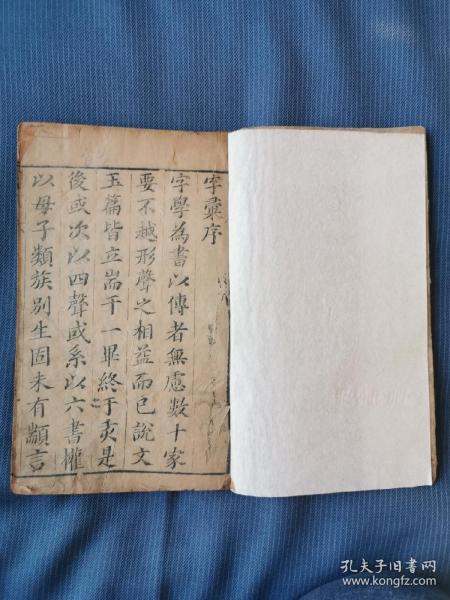 字彙序
字學為書以傳者無慮數十家
要不越形聲之相益而已說文
玉篇皆立耑于一畢終于亥是
後或次以四聲或系以六書㩲
以母子類族別生固未有顓言
孔夫子旧书网
www.kongfz.com